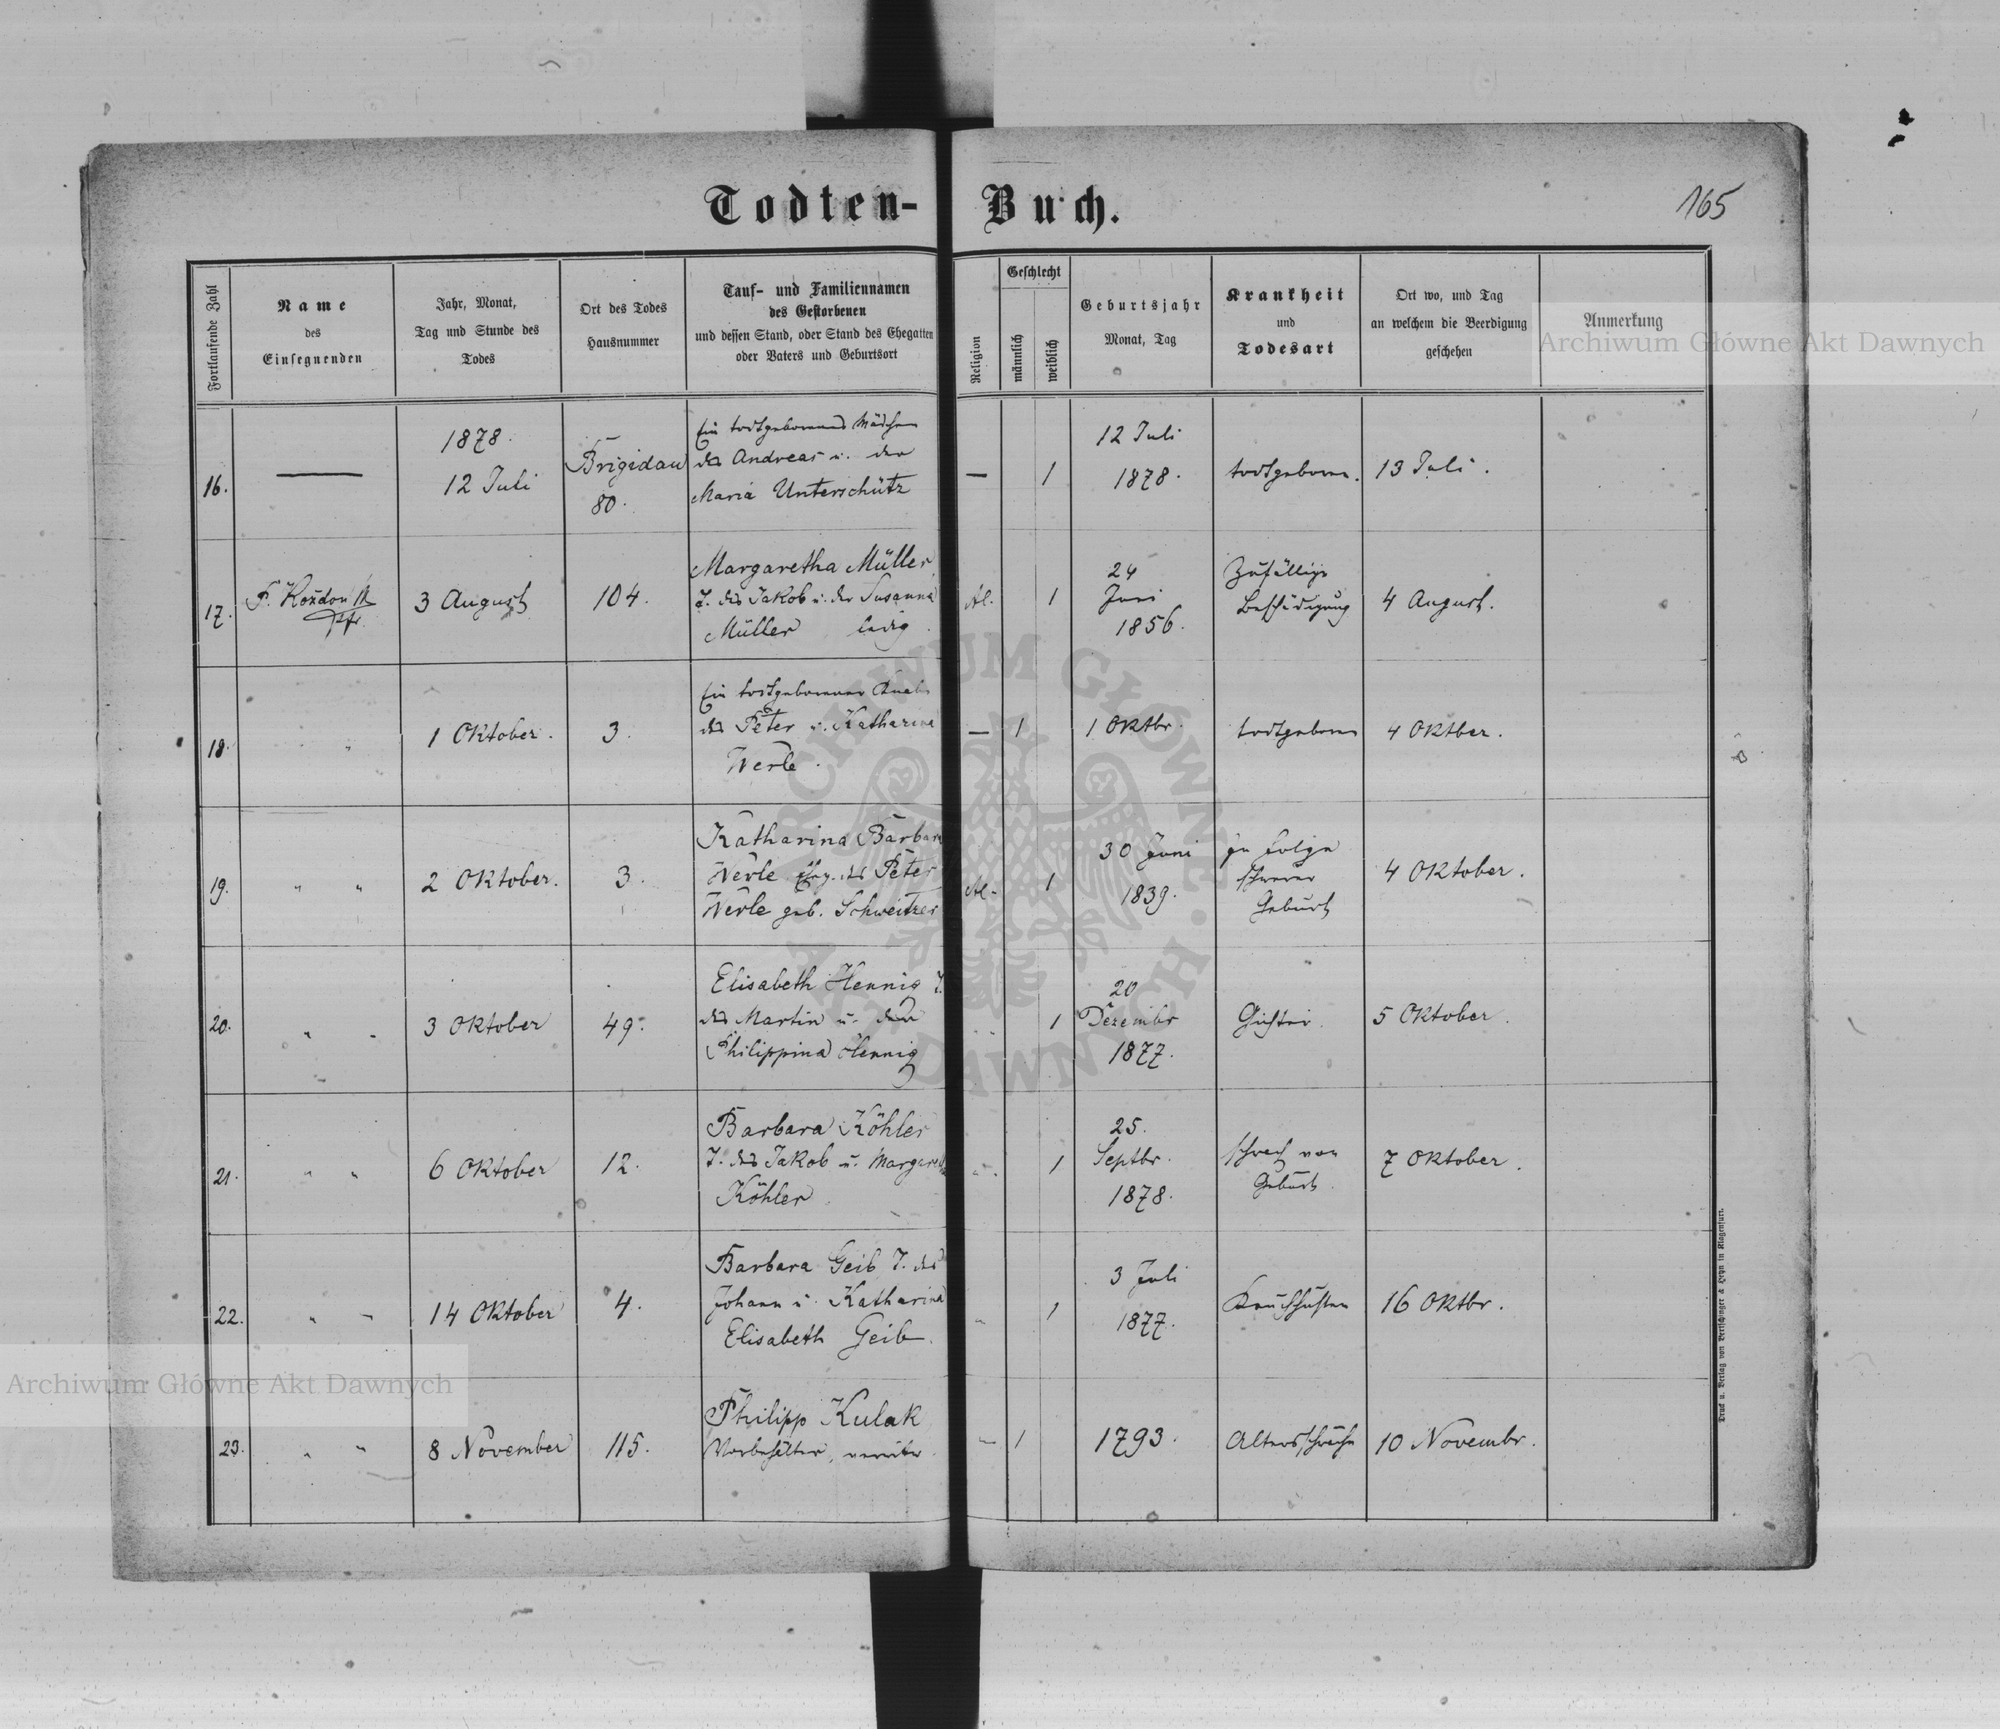 Todten-Buch.
165
Fortlaufende Zahl
Name
des
Einsegnenden
Jahr, Monat,
Tag und Stunde des
Todes
Ort des Todes
Hausnummer
Tauf- und Familiennamen
des Gestorbenen
und dessen Stand, oder Stand des Ehegatten
oder Vaters und Geburtsort
Religion
Geschlecht
männlich
weiblich
Geburtsjahr
Monat, Tag
Krankheit
und
Todesart
Ort wo, und Tag
an welchem die Beerdigung
geschehen
Anmerkung
Archiwum Główne Akt Dawnych
16.
1878.
12 Juli
Brigidau
80.
Ein todtgeborenes Mädchen
des Andreas u. der
Maria Unterschütz
—
1
12 Juli
1878.
todtgeboren.
13 Juli.
17.
F. Koždon
Pfr.
3 August
104.
Margaretha Müller
T. des Jakob u. der Susanna
Müller ledig.
AC.
1
24
Juni
1856.
Zufällige
Beschädigung
4 August.
18.
"
1 Oktober.
3.
Ein todtgeborener Knabe
des Peter u. Katharina
Werle.
—
1
1 Oktbr.
todtgeboren
4 Oktber.
19.
" "
2 Oktober.
3.
Katharina Barbara
Werle Ehg. des Peter
Werle geb. Schweitzer
AC.
1
30 Juni
1839.
In Folge
schwerer
Geburt
4 Oktober.
20.
" "
3 Oktober
49.
Elisabeth Hennig T.
des Martin u. der
Philippina Hennig
" "
1
20
Dezembr
1877.
Gichter.
5 Oktober.
21.
" "
6 Oktober
12.
Barbara Köhler
T. des Jakob u. Margareth
Köhler
" "
1
25.
Septbr.
1878.
schwach von
Geburt.
7 Oktober.
22.
" "
14 Oktober
4.
Barbara Geib T. des
Johann u. Katharina
Elisabeth Geib.
"
1
3 Juli
1877.
Keuchhusten
16 Oktbr.
23.
" "
8 November
115.
Philipp Kulak
Vorbehälter, verwitw
"
1
1793.
Altersschwäche
10 Novembr.
Druck u. Verlag von Bertschinger & Heyn in Klagenfurt.
ARCHIWUM GŁÓWNE AKT DAWNYCH
Archiwum Główne Akt Dawnych